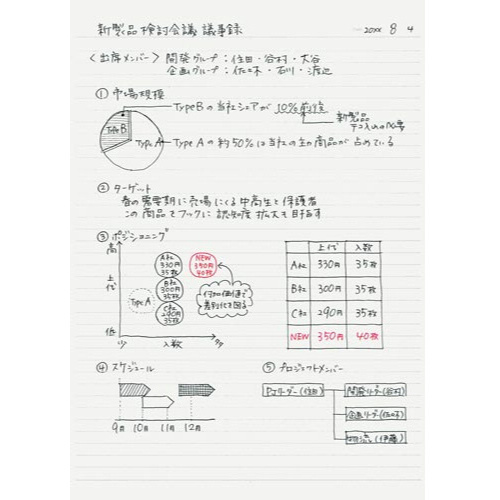 新製品検討会議 議事録
20XX 8 4
〈出席メンバー〉 開発グループ：住田・谷村・大谷
企画グループ：佐々木・石川・渡辺
① 市場規模
Type B の当社シェアが 10%前後
新製品
テコ入れの必要
Type B
Type A
Type A の約50%は当社の主力商品が占めている
② ターゲット
春の需要期に売場にくる中高生と保護者
この商品をフックに認知度拡大も目指す
③ ポジショニング
高
上代
低
少
入数
多
Type A
A社
330円
35枚
B社
300円
35枚
C社
290円
35枚
NEW
350円
40枚
付加価値で
差別化を図る
上代 入数
A社 330円 35枚
B社 300円 35枚
C社 290円 35枚
NEW 350円 40枚
④ スケジュール
9月 10月 11月 12月
⑤ プロジェクトメンバー
PJリーダー(住田)
開発リーダー(谷村)
企画リーダー(佐々木)
物流(伊藤)